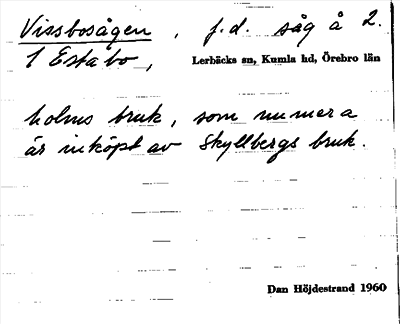 Vissbosågen, f.d. såg å 2.
1 Estabo,
Lerbäcks sn, Kumla hd, Örebro län
holms bruk, som numera
är inköpt av Skyllbergs bruk.
Dan Höjdestrand 1960